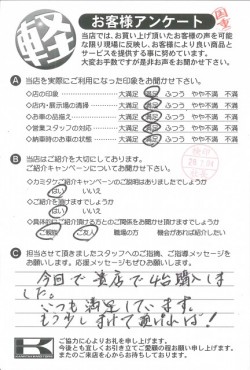 軽
お客様アンケート
当店では、お買い上げ頂いたお客様の声を可能
な限り現場に反映し、お客様により良い商品と
サービスを提供する事に努めています。
大変お手数ですが是非お声をお聞かせ下さい。
A 当店を実際にご利用になった印象をお聞かせ下さい。
◇店の印象 大満足 満足 ふつう やや不満 不満
◇店内・展示場の清掃 大満足 満足 ふつう やや不満 不満
◇お車の品揃え 大満足 満足 ふつう やや不満 不満
◇営業スタッフの対応 大満足 満足 ふつう やや不満 不満
◇納車時のお車の状態 大満足 満足 ふつう やや不満 不満
B 当店はご紹介を大切にしております。
ご紹介キャンペーンについてお聞かせ下さい。
◇カミタケご紹介キャンペーンのご説明はありましたでしょうか
はい いいえ
◇ご紹介を頂けますでしょうか
はい いいえ
◇具体的にご紹介頂ける方とのご関係をお聞かせ頂けますでしょうか
ご親戚 ご友人 職場の方 機会があれば紹介したい
C 担当させて頂きましたスタッフへのご指摘、ご指導メッセージを
お願いします。応援メッセージもぜひお願いします。
今回で貴店で4台購入しま
した。
いつも満足しています。
もう少しまけて頂ければ!
K
ご協力に心よりお礼を申し上げます。
今後とも宜しくお引き立てご愛顧の程お願い申し上げます。
またのご来店を心からお待ちしております。